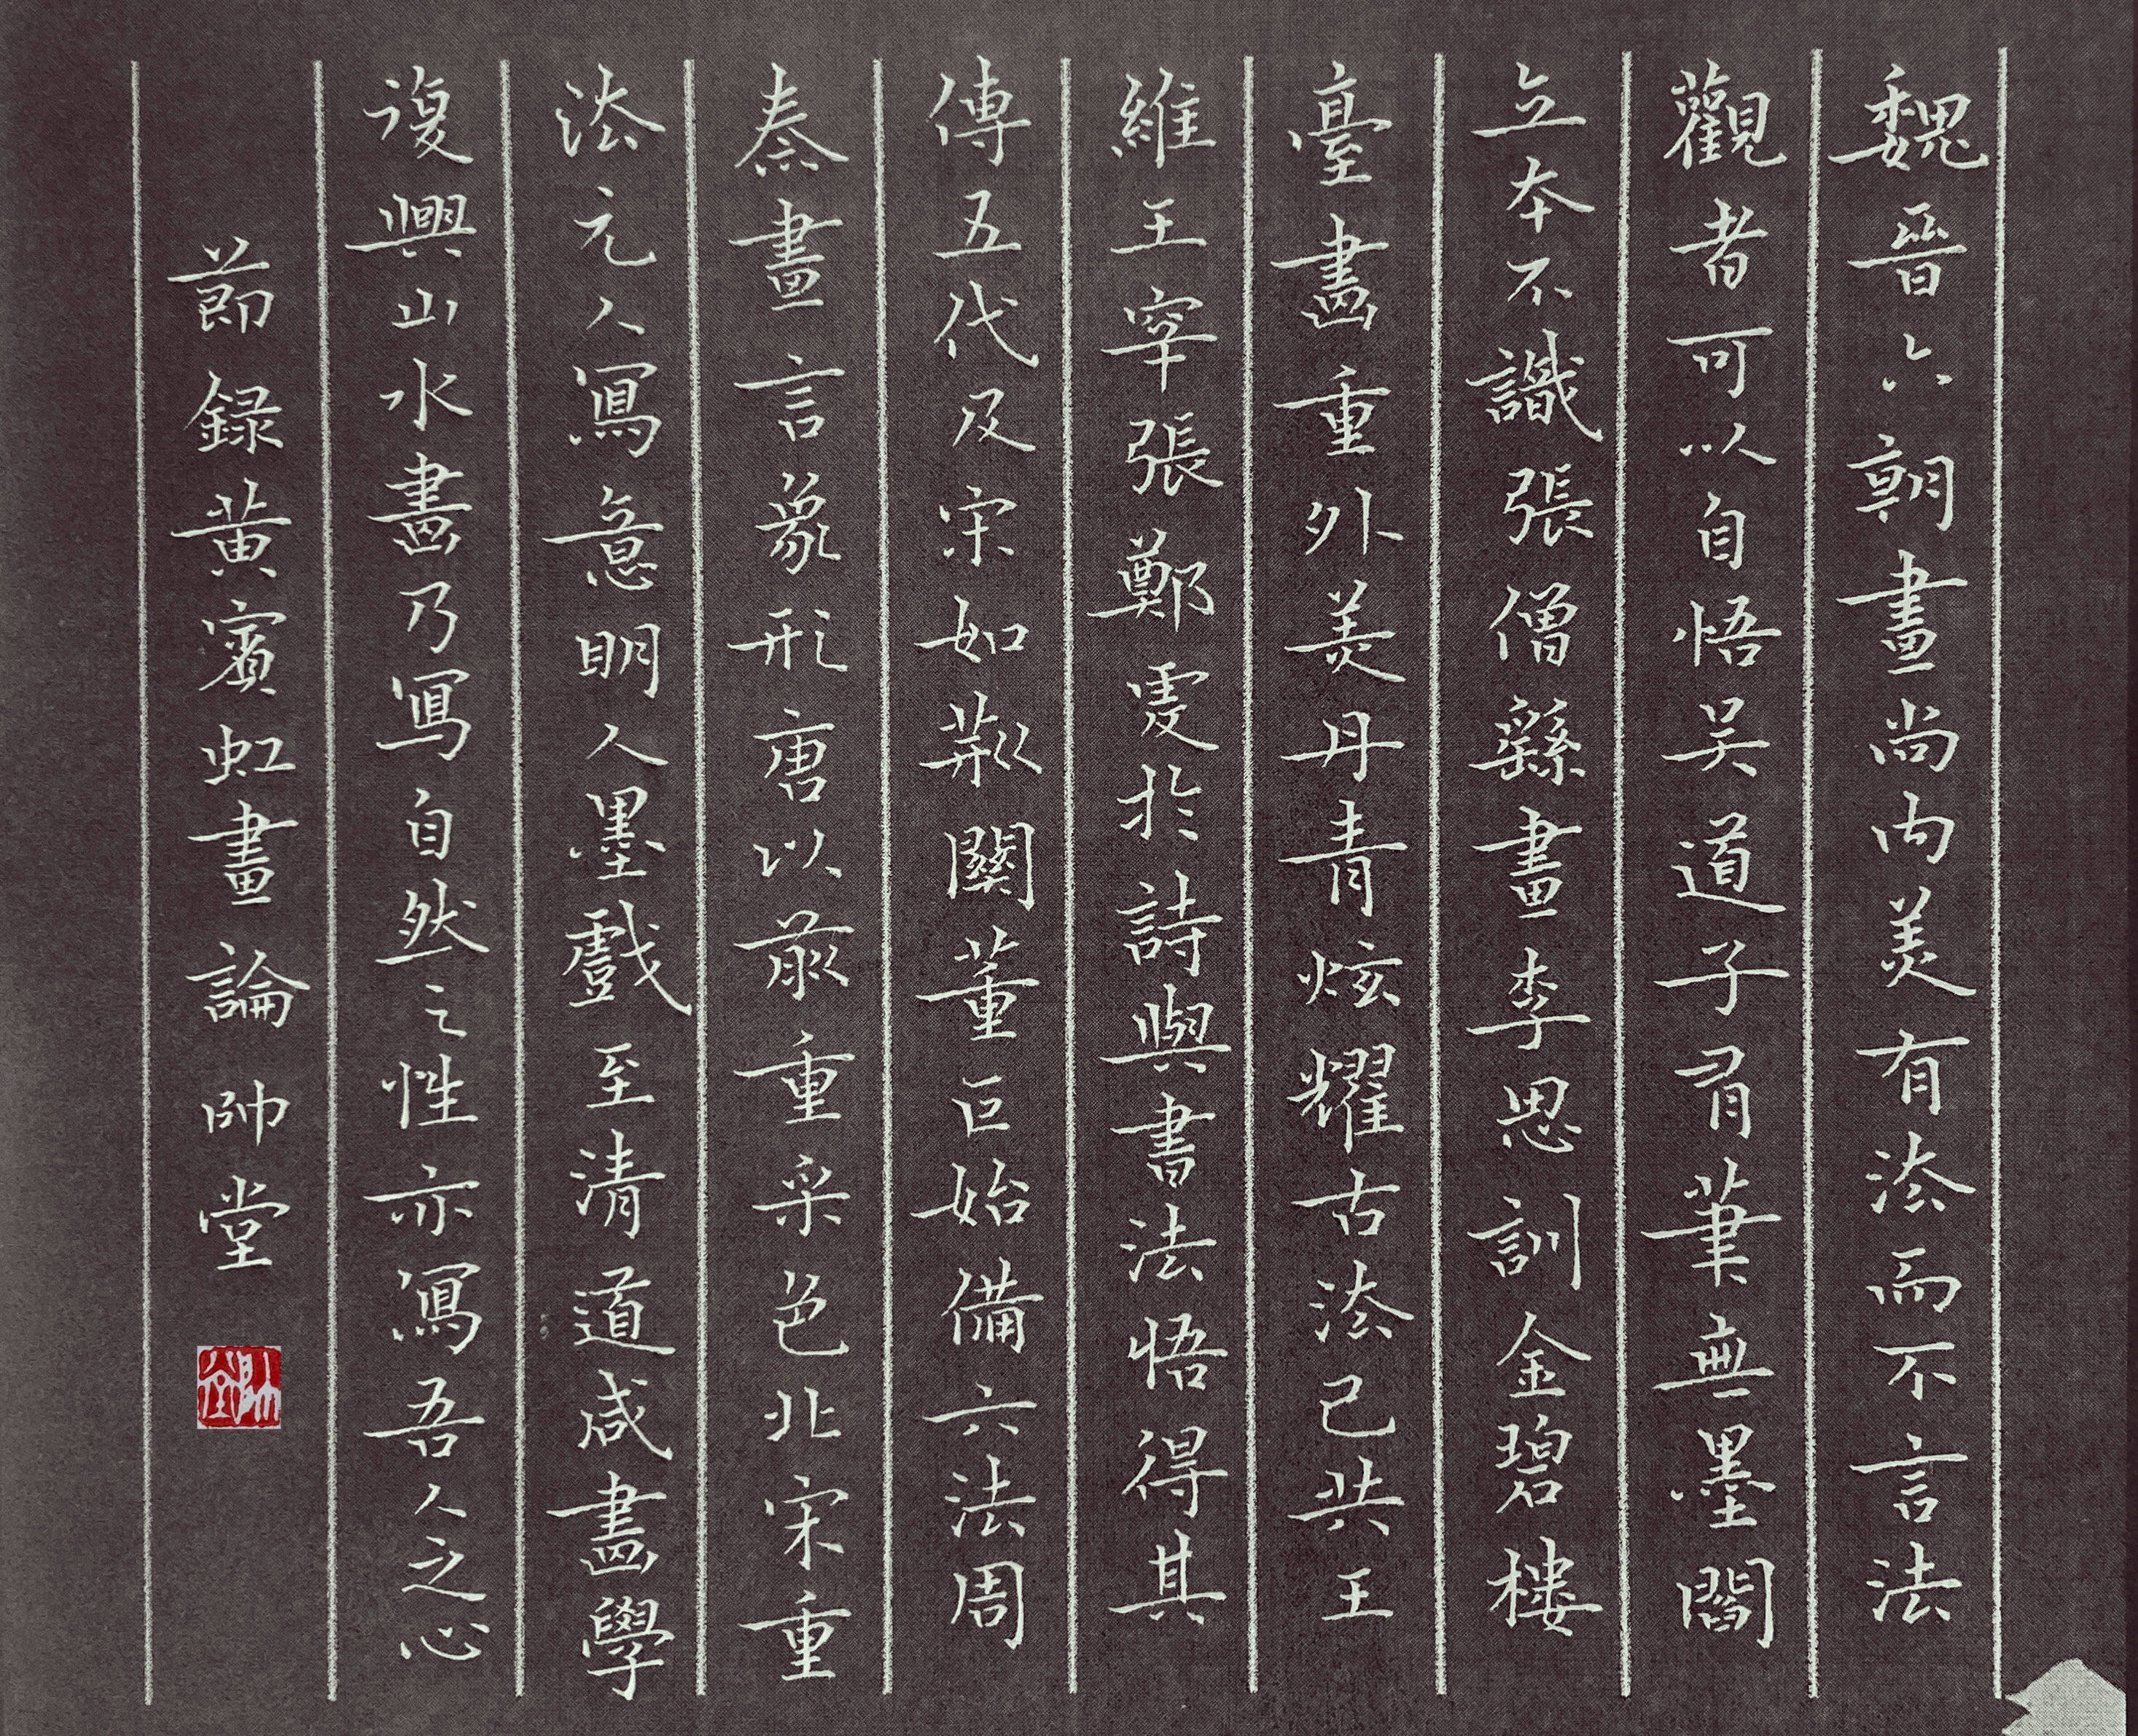 魏晉六朝畫尚內美有法而不言法
觀者可以自悟吴道子有筆無墨閻
立本不識張僧繇畫李思訓金碧樓
臺畫重外美丹青炫耀古法已失王
維王宰張鄭虔於詩與書法悟得其
傳五代及宋如荊關董巨始備六法周
秦畫言象形唐以前重采色北宋重
法元人寫意明人墨戲至清道咸畫學
復興山水畫乃寫自然之性亦寫吾人之心
節録黄賓虹畫論 帥堂
帥堂